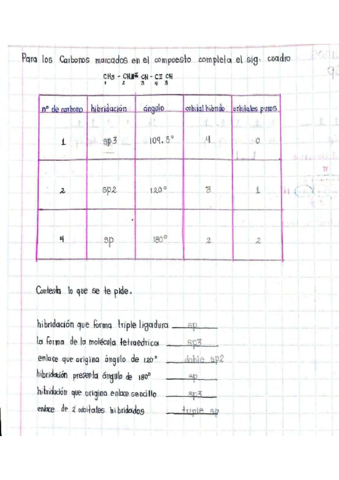 Para los Carbonos marcados en el compuesto completa el sig. cuadro
CH3 - CH2= CH - C≡ CH
1 2 3 4 5
nº de carbono hibridación ángulo orbital híbrido orbitales puros
1 sp3 109.5° 4 0
2 sp2 120° 3 1
4 sp 180° 2 2
Contesta lo que se te pide.
hibridación que forma triple ligadura sp
la forma de la molécula tetraédrica sp3
enlace que origina ángulo de 120° doble sp2
hibridación presenta ángulo de 180° sp
hibridación que origina enlace sencillo sp3
enlace de 2 orbitales hibridados triple sp